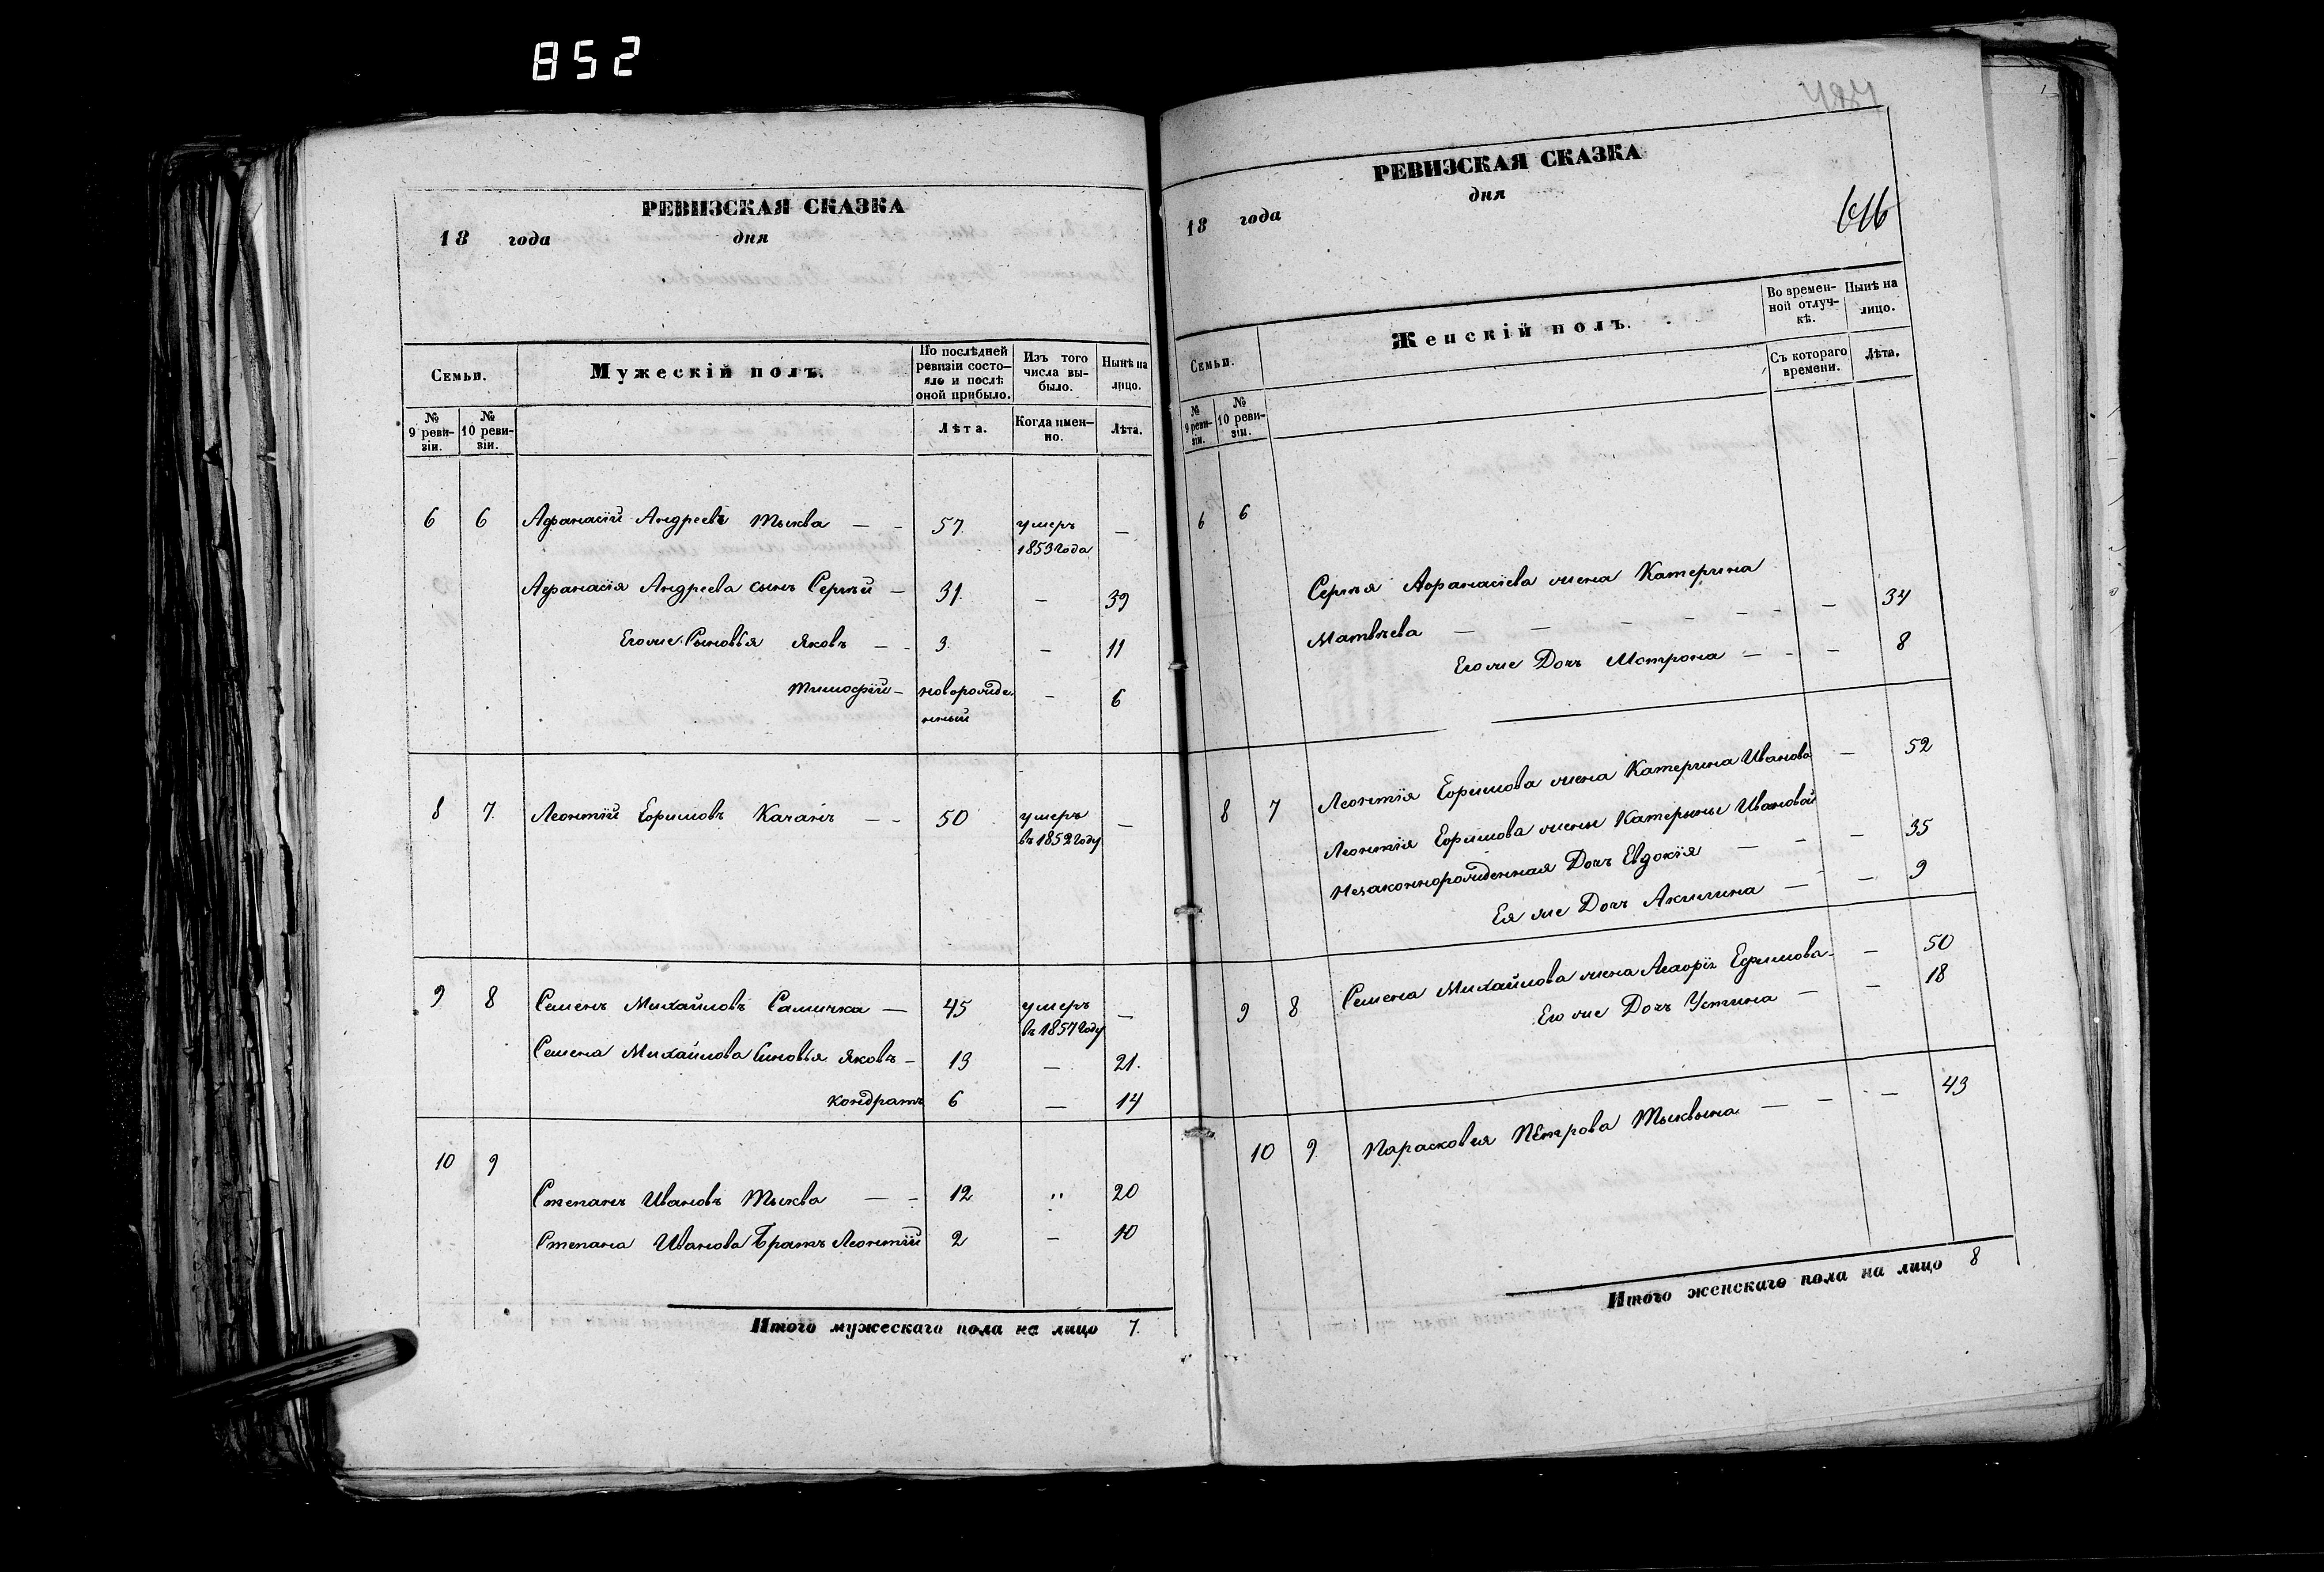 852
РЕВИЗСКАЯ СКАЗКА
18 года дня
Семьи.
Мужескій полъ.
По послѣдней ревизіи состояло и послѣ оной прибыло.
Изъ того числа выбыло.
Ныне на лицо.
№ 9 ревизіи.
№ 10 ревизіи.
Лѣта.
Когда именно.
Лѣта.
6 6 Афанасій Андреевъ Тыква — - 57. умеръ —
1853 года
Афанасія Андреева сынъ Сергѣй — 31. — 39
Его же Сыновья Яковъ — - 3. — 11
Тимофій — новорожде — 6
нный
8 7. Леонтій Ефимовъ Качанъ — - 50 умеръ —
въ 1852 году
9 8 Семенъ Михайловъ Самичка — 45 умеръ —
въ 1857 году
Семена Михайлова Синовья Яковъ — 13 — 21.
Кондратъ 6 — 14
10 9
Степанъ Ивановъ Тыква — - 12 " 20
Степана Иванова Братъ Леонтій 2 — 10
Итого мужескаго пола на лицо 7.
РЕВИЗСКАЯ СКАЗКА
18 года дня
616
Семьи.
Женскій полъ.
Во временной отлучкѣ.
Нынѣ на лицо.
№ 9 ревизіи.
№ 10 ревизіи.
Съ котораго времени.
Лѣта.
6 6
Сергѣя Афанасіева жена Катерина
Матвѣева — — — — - — 34
Его же Дочь Мотрона — - — 8
8 7 Леонтія Ефимова жена Катерина Иванова — 52
Леонтія Ефимова жены Катерыны Ивановой
Незаконнорожденная Дочь Евдокія — - — 35
Ея же Дочь Акилина — — 9
9 8 Семена Михайлова жена Ефимова — — 50
Его же Дочь Устина — — 18
10 9. Парасковія Петрова Тыквына — — — 43
Итого женскаго пола на лицо 8